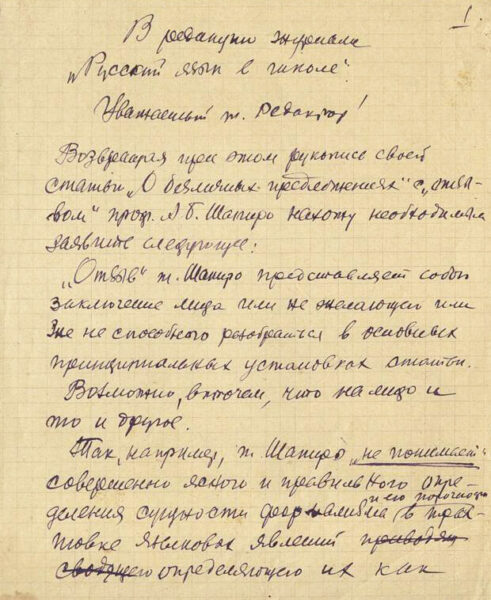 1.
В редакцию журнала
"Русский язык в школе".
Уважаемый т. Редактор!
Возвращая при этом рукопись своей
статьи "О безличных предложениях" с "отзы-
вом" проф. А Б. Шапиро нахожу необходимым
заявить следующее:
"Отзыв" т. Шапиро представляет собой
заключение лица или не желающего или
не способного разобраться в основных
принципиальных установках статьи.
Возможно, впрочем, что налицо и
то и другое.
Так, например, т. Шапиро "не понимает"
совершенно ясного и правильного опре-
деления сущности формализма и его порочности в трак-
товке языковых явлений приводящ
сводящего определяющего их как